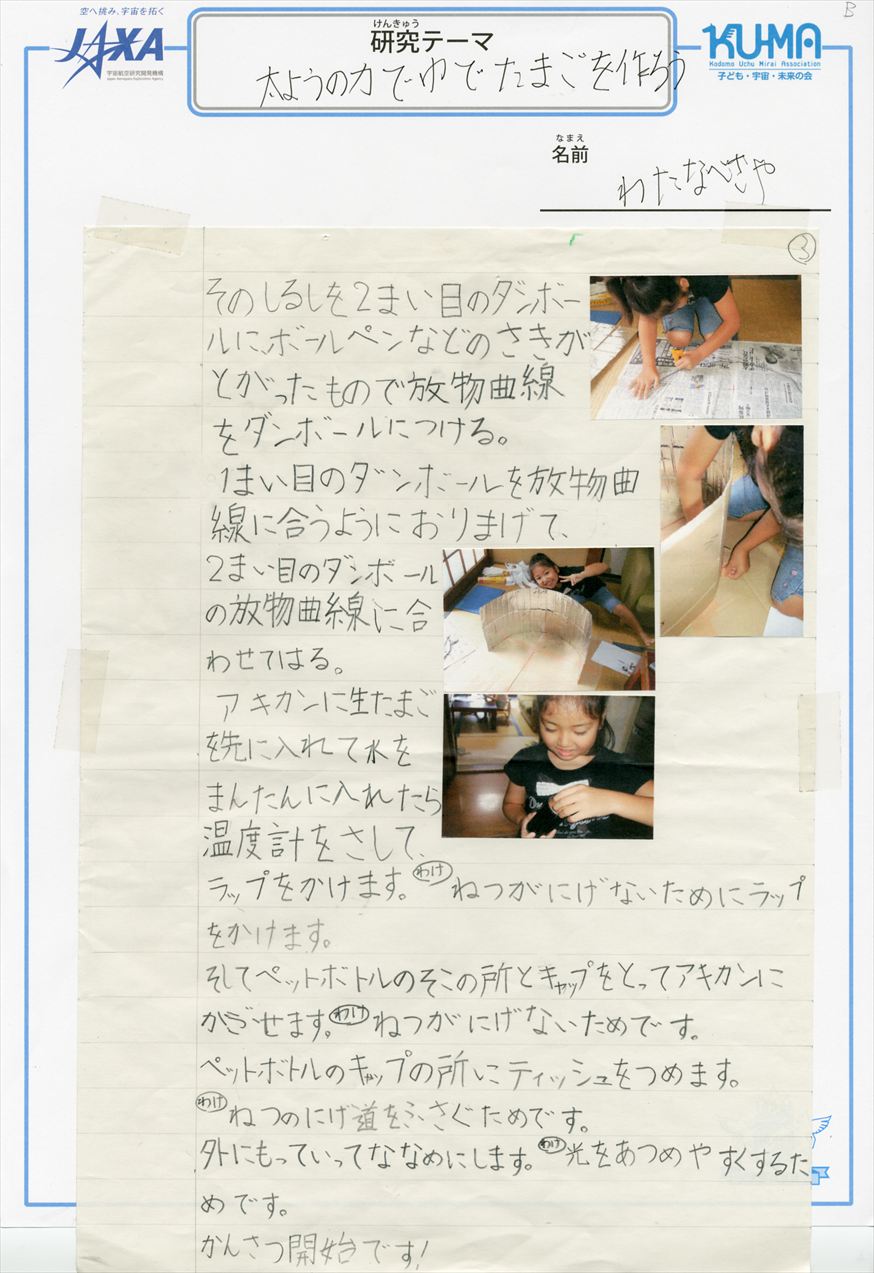 B
空へ挑み、宇宙を拓く
JAXA
宇宙航空研究開発機構
Japan Aerospace Exploration Agency
けんきゅう
研究テーマ
太ようの力でゆでたまごを作ろう
KU-MA
Kodomo Uchu Mirai Association
子ども・宇宙・未来の会
なまえ
名前
わたなべさや
③
そのしるしを2まい目のダンボー
ルに、ボールペンなどのさきが
とがったもので放物曲線
をダンボールにつける。
1まい目のダンボールを放物曲
線に合うようにおりまげて、
2まい目のダンボール
の放物曲線に合
わせてはる。
アキカンに生たまご
を先に入れて水を
まんたんに入れたら
温度計をさして、
ラップをかけます。わけ ねつがにげないためにラップ
をかけます。
そしてペットボトルのそこの所とキャップをとってアキカンに
かぶせます。わけ ねつがにげないためです。
ペットボトルのキャップの所にティッシュをつめます。
わけ ねつのにげ道をふさぐためです。
外にもっていってななめにします。わけ 光をあつめやすくするた
めです。
かんさつ開始です!